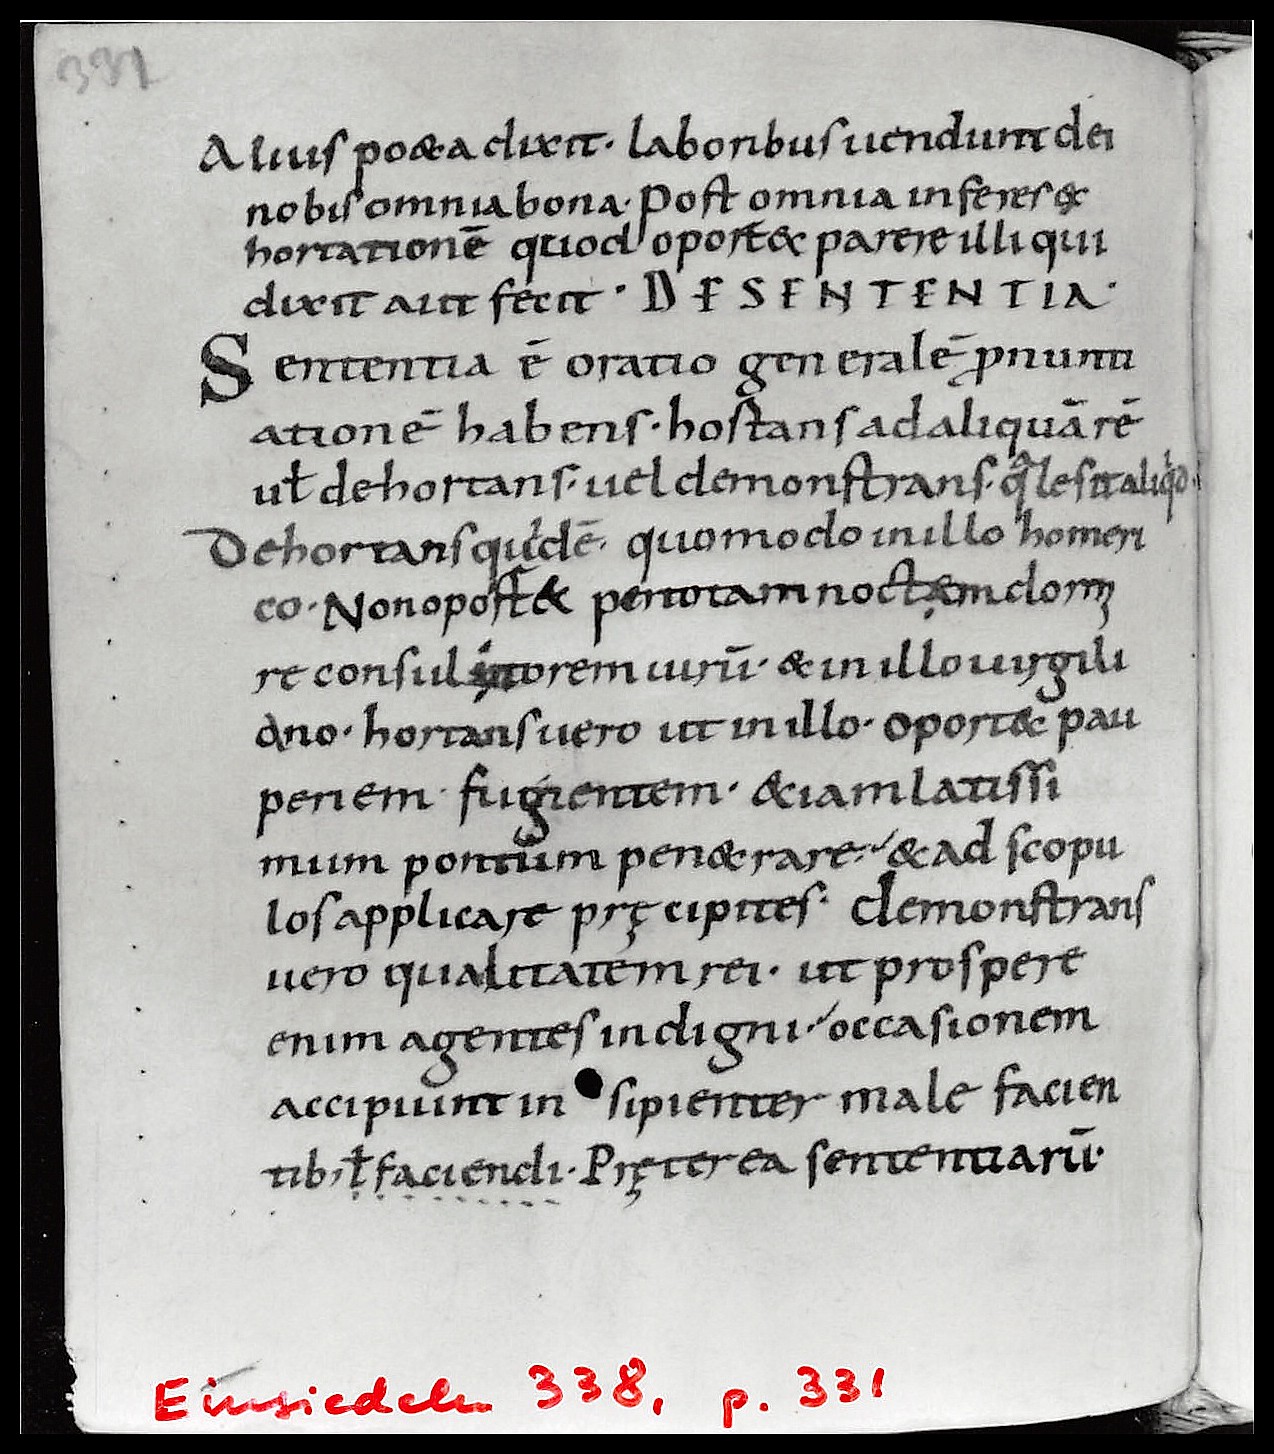 331
Alius po&a dixit· laboribus uendunt dei
nobis omnia bona· post omnia inferes &
hortationē quod oport& parere illi qui
dixit aut fecit· DE SENTENTIA·
Sententia ē oratio generalē ꝓnunti
ationē habens· hostans ad aliquā rē
uł dehortans· uel demonstrans· qͣle sit aliqͥd·
Dehortans quidē· quomodo in illo homeri
co· Non oport& per totam noctem dormi
re consul torem uirū· & in illo uirgili
ano· hortans uero ut in illo· oport& pau
periem fugientem· &iam latissi
mum pontum pen&rare· & ad scopu
los applicare pręcipites· demonstrans
uero qualitatem rei· ut prospere
enim agentes indigni· occasionem
accipiunt in sipienter male facien
tib; ł faciendi· Pręterea sententiarū·
Einsiedeln 338, p. 331